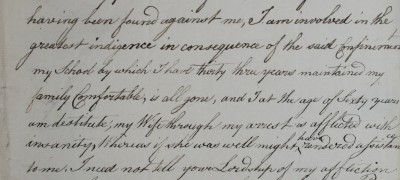 having been found against me, I am involved in the
greatest indigence in consequence of the said Confinement
my School by which I have thirty three years maintained my
family Comfortable, is all gone, and I at the age of Sixty years
am distitute, my Wife through my arrest is afflicted with
insanity, Whereas if she was well might have rendered assistan
to me. I need not tell your Lordship of my affliction